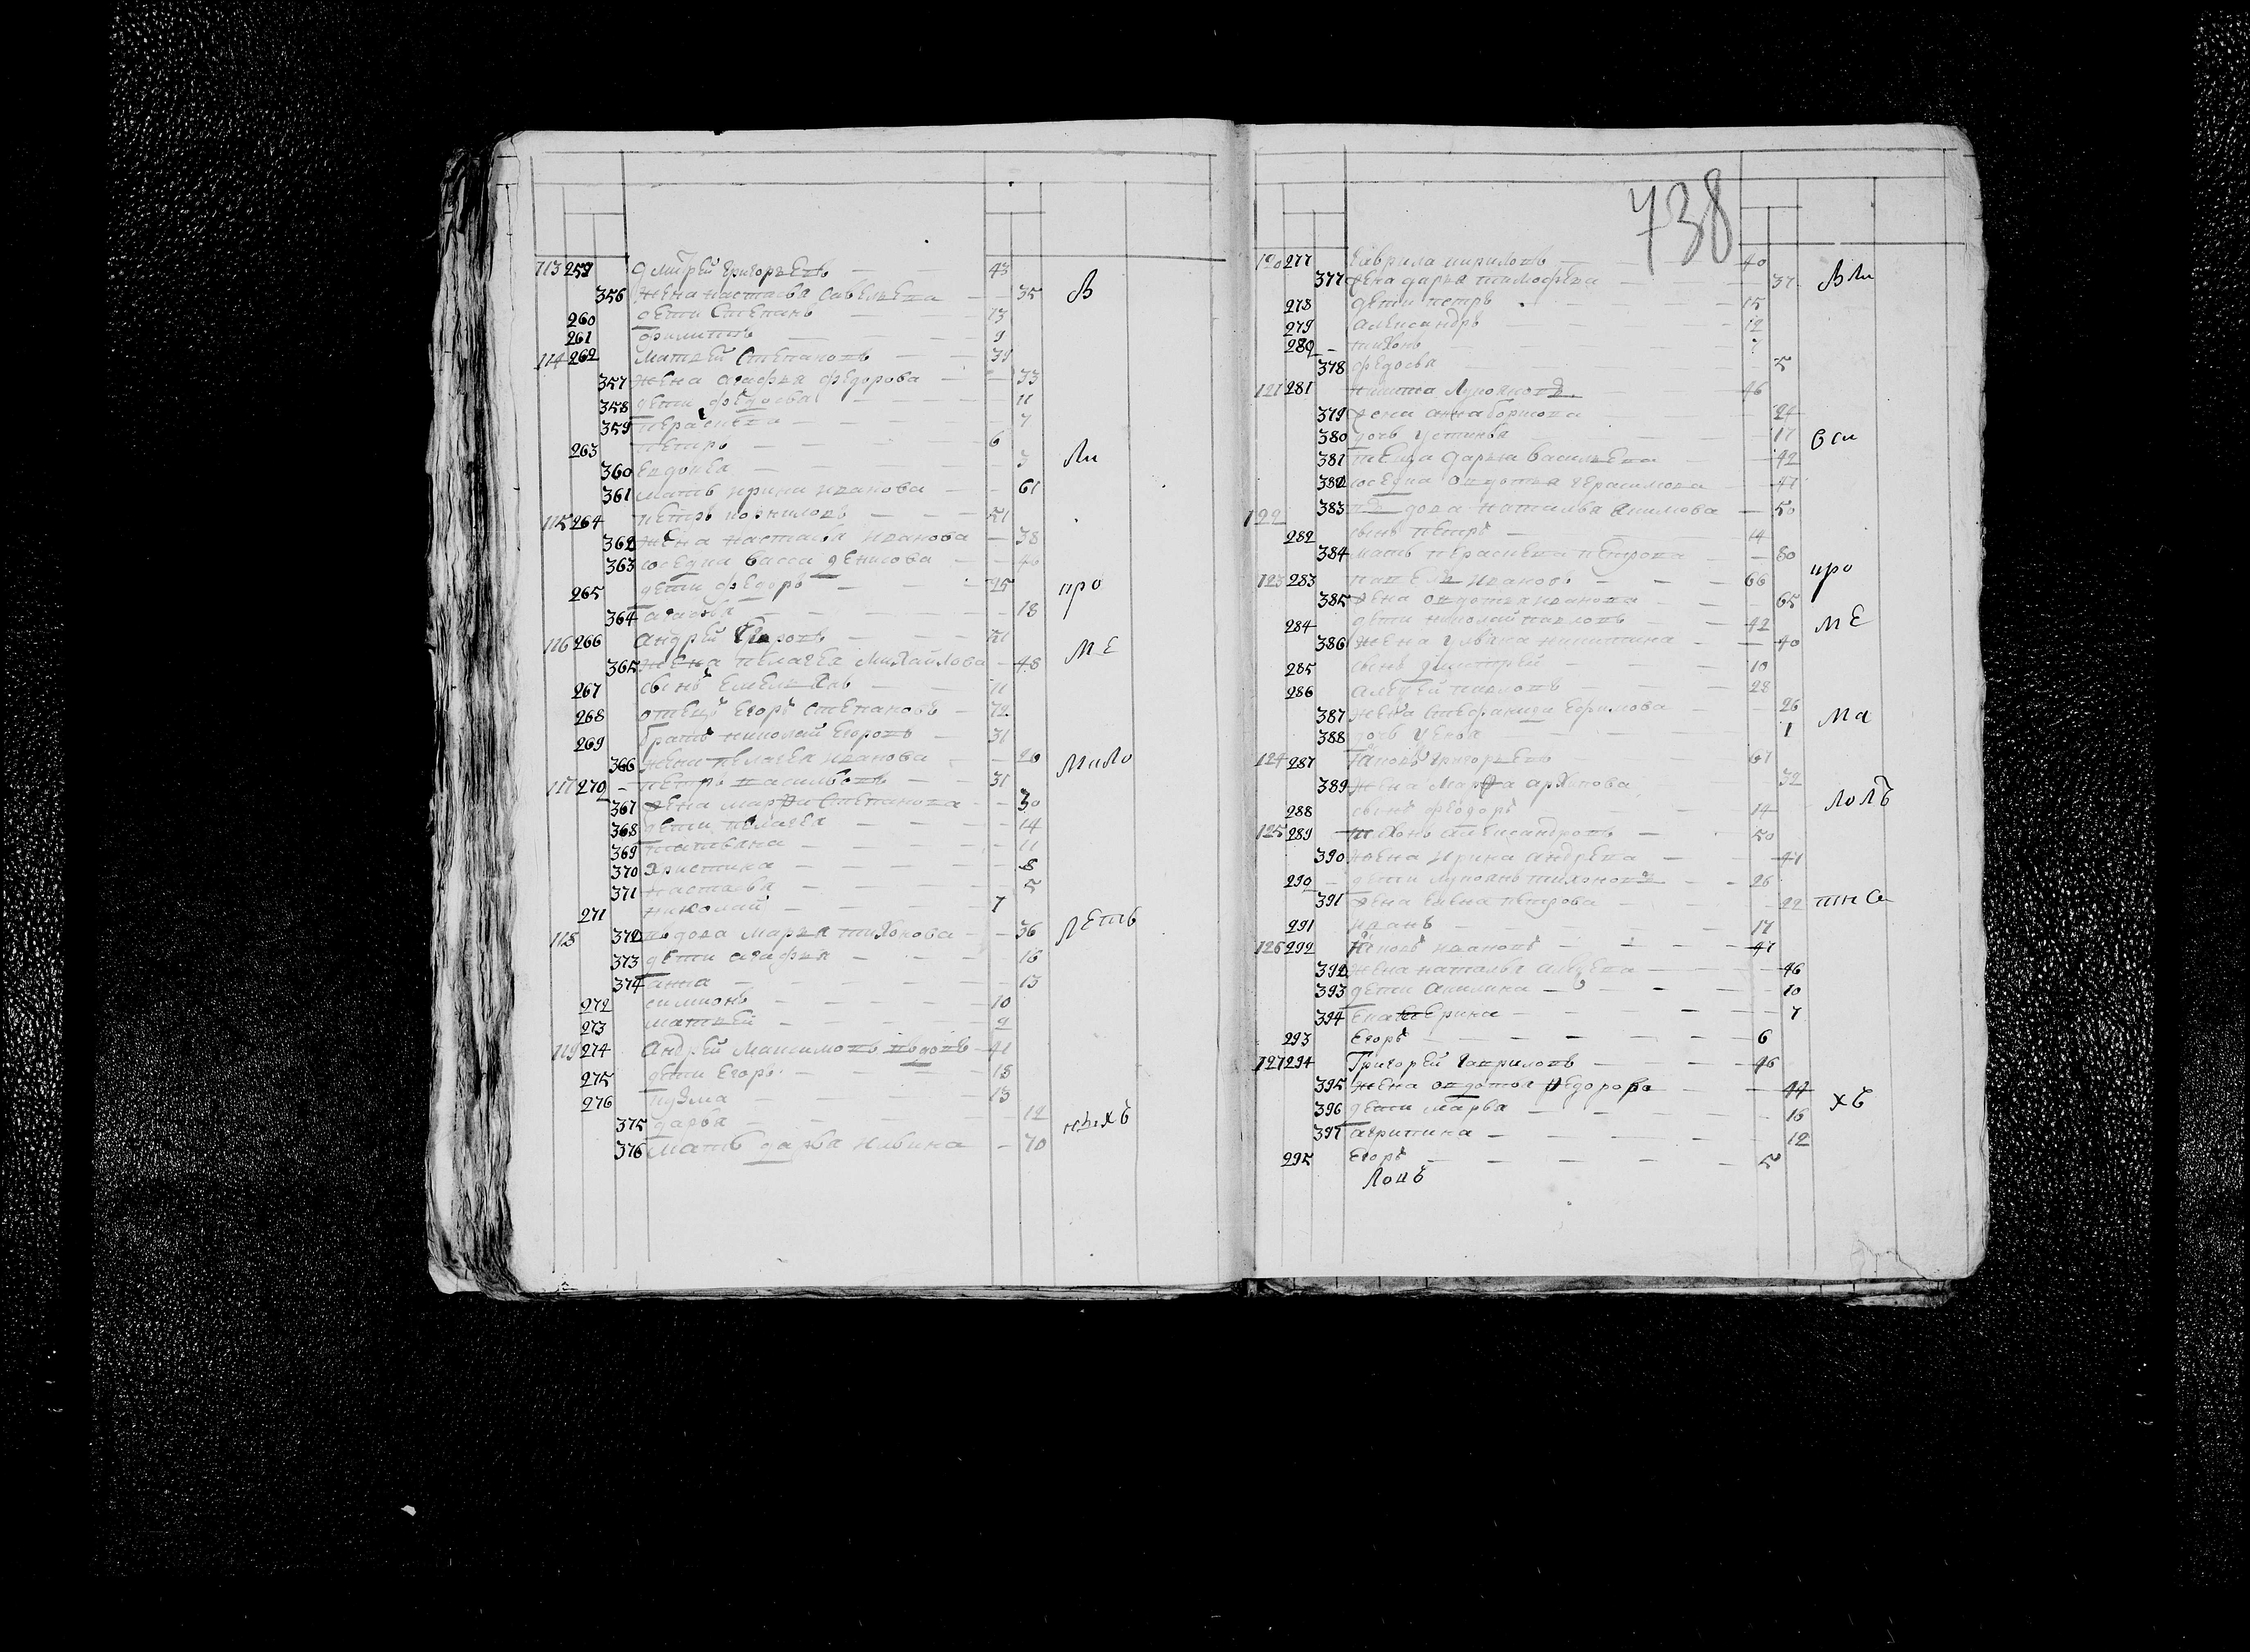 113 259 Дмитрей Григорьевъ — 43
356 жена настасья савельева — 35 В
260 дети Степанъ — 13
261 филиппъ — 9
114 262 матвей Степановъ — 39
357 жена агафья федорова — 33
358 дети федосья — 11
359 пераскева — 7
263 петръ — 6
360 евдокея — 3 Ли
361 мать ирина иванова — 61
115 264 петръ корниловъ — 51
362 жена настасья иванова — 38
363 соседка васса денисова — 40
265 дети федоръ — 25 про
364 агафья — 18
116 266 андрей Егоровъ — 51
365 жена пелагея михайлова — 48 МЕ
267 сынъ Емельянъ — 11
268 отецъ Егоръ Степановъ — 72
269 братъ николай Егоровъ — 31
366 жена пелагея иванова — 26 Мило
117 270 петръ васильевъ — 31
367 жена марфа Степанова — 30
368 дети пелагея — 14
369 татьяна — 11
370 христина — 8
371 настасья — 5
271 николай — 7
118 372 вдова марья тихонова — 36 ЛЕтъ
373 дети агафья — 16
374 анна — 13
272 симионъ — 10
273 матвей — 9
119 274 андрей Максимовъ вдовъ — 41
275 дети Егоръ — 18
276 кузма — 13
375 дарья — 12 ныхъ
376 мать дарья ильина — 70
738
120 277 Гаврила кириловъ — 40
377 жена дарья тимофеева — 37 Вли
278 дети петръ — 15
279 александръ — 12
280 тихонъ — 7
378 федосья — 5
121 281 никита Лукояновъ — 46
379 жена анна борисова — 24
380 дочь устинья — 17 Оси
381 теща дарья васильева — 42
382 соседка овдотья герасимова — 47
122 383 вдова наталья акимова — 50
282 сынъ петръ — 14
384 мать пераскева петрова — 80
123 283 павелъ ивановъ — 66 про
385 жена овдотья иванова — 65
284 дети николай павловъ — 42 МЕ
386 жена ульяна никитина — 40
285 сынъ димитрей — 10
286 алексей павловъ — 28
387 жена стефанида ефимова — 26 Ма
388 дочь — 1
124 287 Григорьевъ — 67
389 жена Марфа архипова — 32
288 сынъ федоръ — 14 Лолъ
125 289 тихонъ александровъ — 50
390 жена ирина андреева — 47
290 дети лукоянъ тихоновъ — 26
391 жена елена петрова — 22 тнС
291 иванъ — 17
126 292 ивановъ — 47
392 жена наталья алексеева — 46
393 дети акилина — 10
394 екатерина — 7
293 Егоръ — 6
127 294 Григорей гавриловъ — 46
395 жена овдотья федорова — 44
396 дети марья — 16 хъ
397 агрипина — 12
295 Егоръ — 5
Лопъ